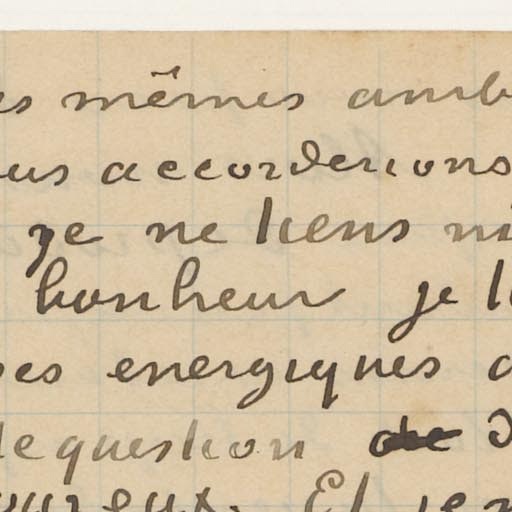 es mêmes amb
us accorderions
je ne tiens ni
bonheur je t
es energiques
de question de
oureux. Et je